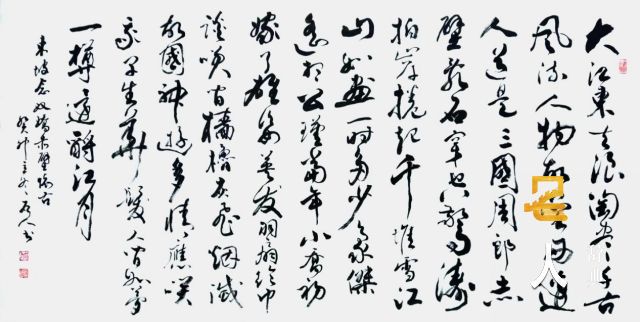 大江東去浪淘盡千古
風流人物故壘西邊
人道是三國周郎赤
壁亂石穿空驚濤
拍岸捲起千堆雪江
山如畫一時多少豪傑
遙想公瑾當年小喬初
嫁了雄姿英發羽扇綸巾
談笑間檣櫓灰飛烟滅
故國神遊多情應笑
我早生華髮人間如夢
一樽還酹江月
東坡念奴嬌赤壁懷古